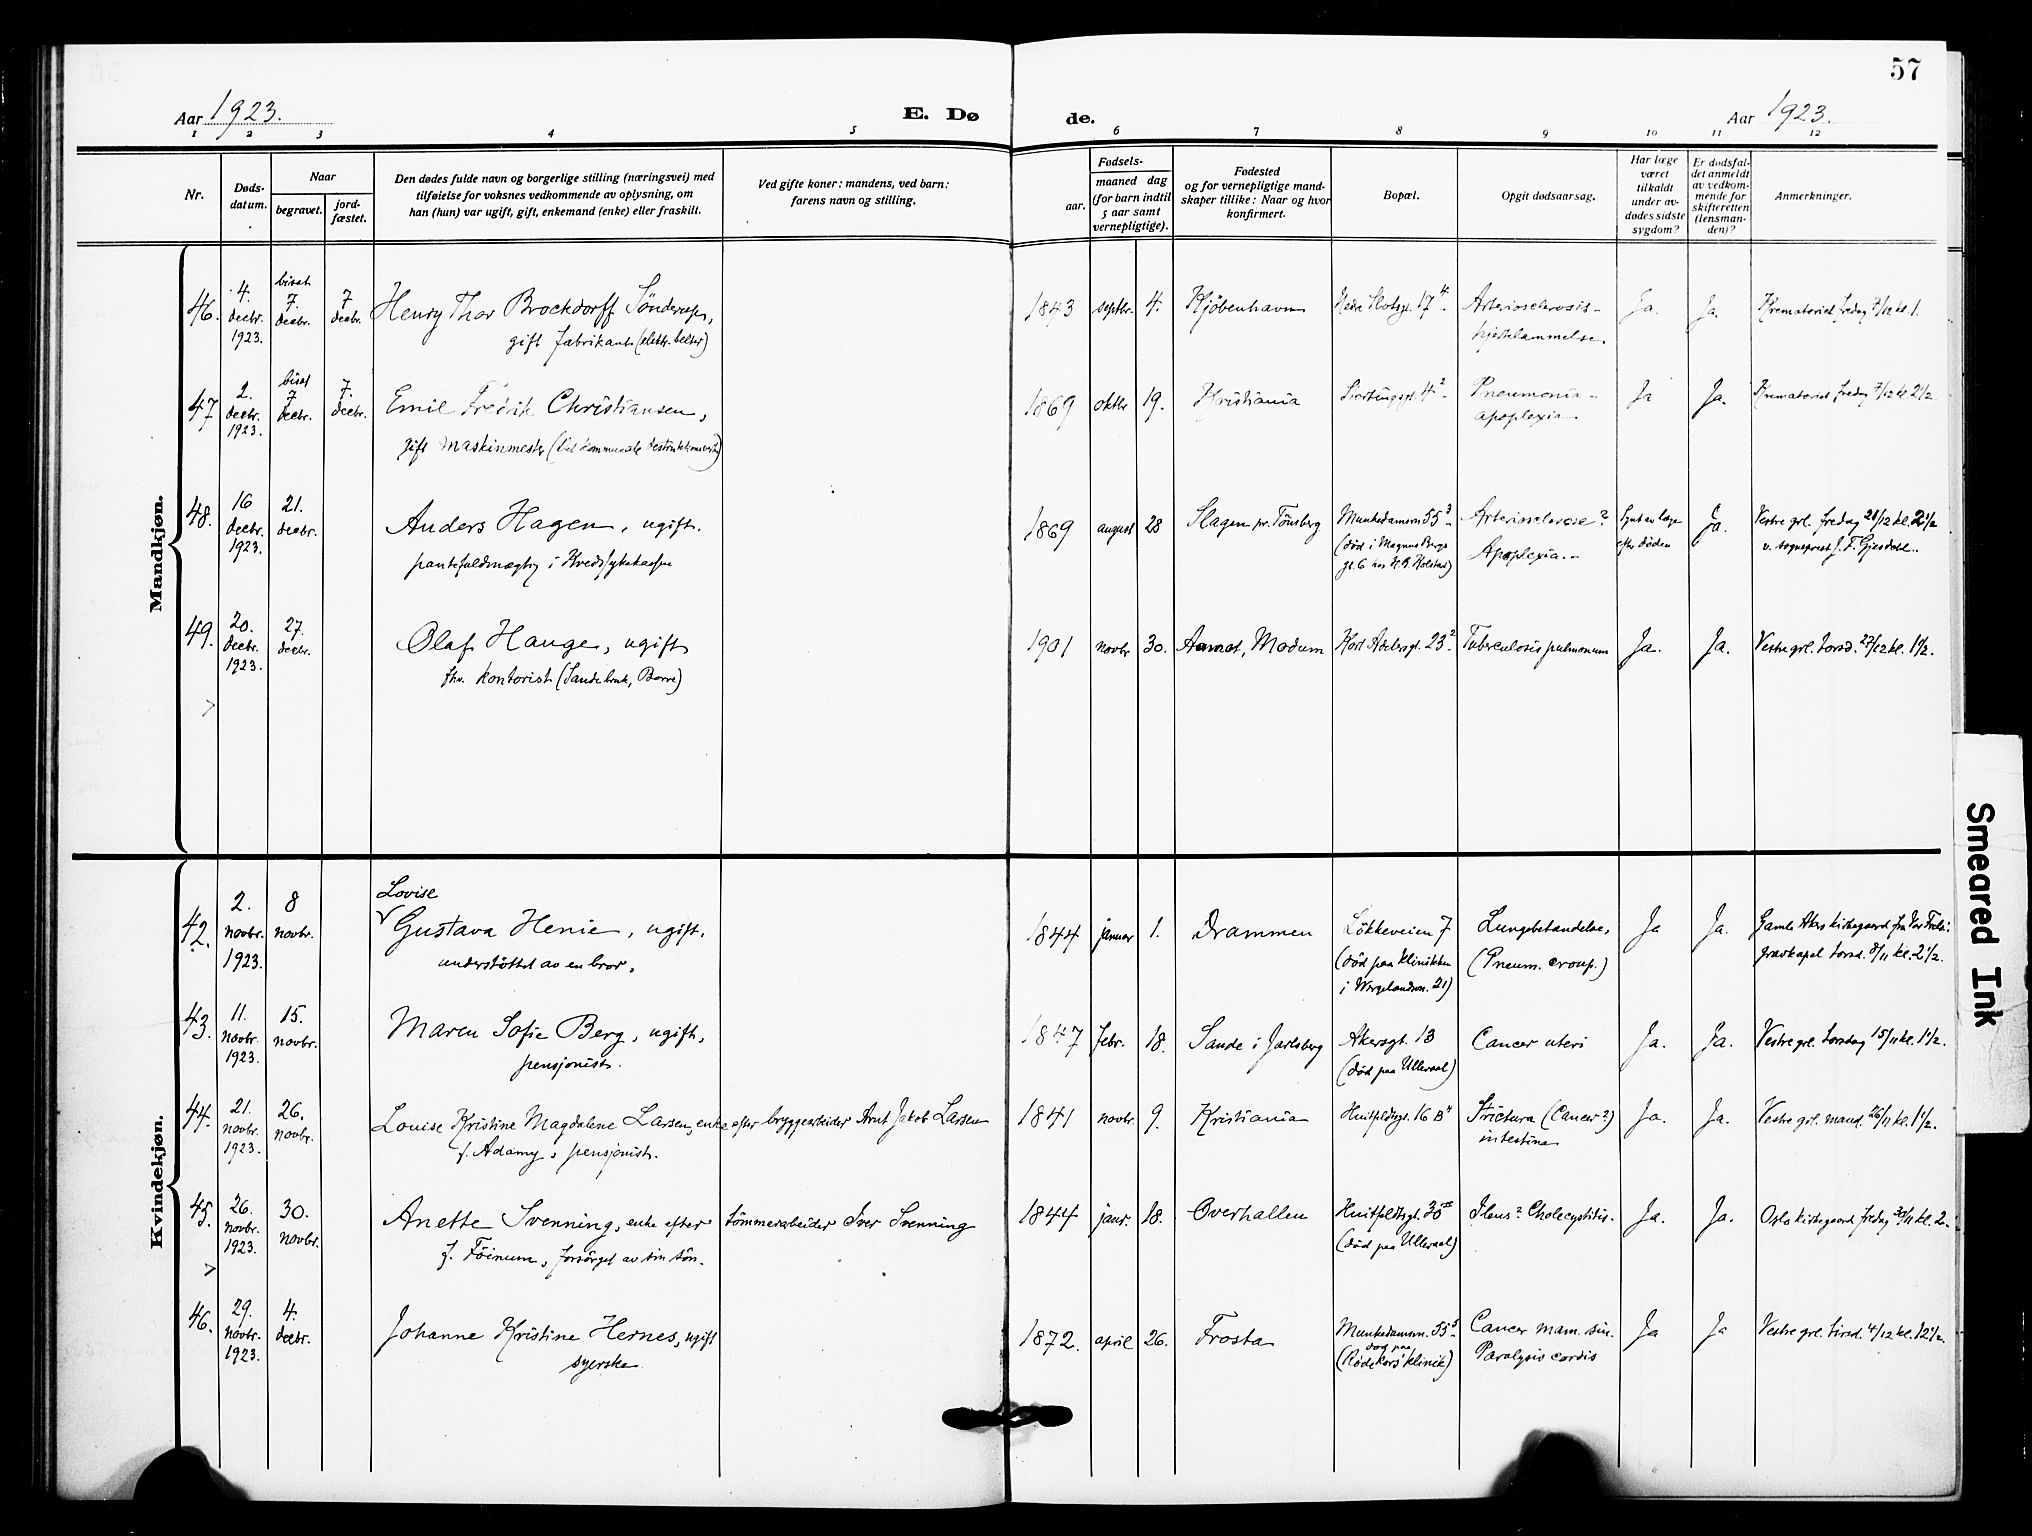 57
Aar 1923.
E. Dø
de.
Aar 1923.
1 2 3 4 5 6 7 8 9 10 11 12
Nr.
Døds-
datum.
Naar
begravet.
jord-
fæstet.
Den dødes fulde navn og borgerlige stilling (næringsvei) med
tilføielse for voksnes vedkommende av oplysning, om
han (hun) var ugift, gift, enkemand (enke) eller fraskilt.
Ved gifte koner: mandens, ved barn:
farens navn og stilling.
Fødsels-
aar.
maaned dag
(for barn indtil
5 aar samt
vernepligtige).
Fødested
og for vernepligtige mand-
skaper tillike: Naar og hvor
konfirmert.
Bopæl.
Opgit dødsaarsag.
Har læge
været
tilkaldt
under av-
dødes sidste
sygdom?
Er dødsfal-
det anmeldt
av vedkom-
mende for
skifteretten
(lensman-
den)?
Anmerkninger.
Mandkjøn.
46.
4.
decbr.
1923.
bisat
7.
decbr.
7
decbr.
Henry Thor Brockdorff Sönderup,
gift fabrikant (elektr. belter)
1843 septbr. 4. Kjöbenhavn
Nedre Slotsgt. 17 4
Arteriosclerosis-
hjertelammelse.
Ja. Ja.
Krematoriet fredag 7/12 kl. 1.
47
2.
decbr.
1923.
bisat
7
decbr.
7.
decbr.
Emil Fredrik Christiansen,
gift maskinmester (det kommunale
1869 oktbr 19. Kristiania
Stortingsgt. 4 2
Pneumonia-
apoplexia.
Ja Ja.
Krematoriet fredag 7/12 kl. 2 1/2
48.
16
decbr.
1923.
21.
decbr.
Anders Hagen, ugift.
pantefuldmægtig i Kredssykekasse
1869 august 28 Slagen pr. Tönsberg
Munkedamsvn 55 3
(död i Magnus Bergs
gt. 6
Arteriosclerose?
Apoplexia.-
Synt av læge
efter döden
Ja.
Vestre grl. fredag 21/12 kl. 2 1/2
v. sogneprest J. F. Gjesdahl.
49.
20.
decbr.
1923.
27.
decbr.
Olaf Hauge, ugift
fhv. kontorist (Sandebruk, Borre)
1901 novbr 30. Aamot, Modum
Kort Adelersgt. 23 2
Tuberculosis pulmonum
Ja. Ja.
Vestre grl. torsd. 27/12 kl. 1 1/2.
Kvindekjøn.
42.
2.
novbr.
1923.
8
novbr.
Lovise
Gustava Henie, ugift,
understöttet av en bror.
1844 januar 1. Drammen
Lökkeveien 7
(död paa klinikken
i Wergelandsvn. 21)
Lungebetændelse,
(Pneum. croup.)
Ja Ja.
Gamle Akers kirkegaard fra Vor Frels:
gravkapel torsd. 8/11 kl. 2 1/2.
43.
11.
novbr.
1923.
15.
novbr.
Maren Sofie Berg, ugift,
pensjonist.
1847 febr. 18. Sande i Jarlsberg
Akersgt. 13
(död paa Ulleraal)
Cancer uteri
Ja. Ja.
Vestre grl. torsdag 15/11 kl. 1 1/2.
44.
21.
novbr.
1923.
26.
novbr.
Louise Kristine Magdalene Larsen, enke efter bryggearbeider Arnt Jakob Larsen
f. Adamy, pensjonist.
1841 novbr 9. Kristiania
Huitfeldtsgt. 16 B 4
Strictura (Cancer?)
intestina
Ja. Ja.
Vestre grl. mand. 26/11 kl. 1 1/2.
45.
26.
novbr.
1923.
30.
novbr.
Anette Svenning, enke efter tömmerarbeider Iver Svenning
f. Föinum, forsörget av sin sön.
1844 janr. 18. Overhallen
Huitfeldtsgt. 30 II
(död paa Ulleraal)
Ilens? Cholecystitis.
Ja. Ja.
Oslo kirkegaard fredag 30/11 kl. 2.
46.
29.
novbr.
1923.
4.
decbr.
Johanne Kristine Hernes, ugift
syerske
1872. april 26. Frosta
Munkedamsvn. 55 5
död paa
(Rödekors' klinik)
Cancer mam. sin.
Paralysis cordis
Ja Ja
Vestre grl. tirsd. 4/12 kl. 12 1/2.
Smeared Ink